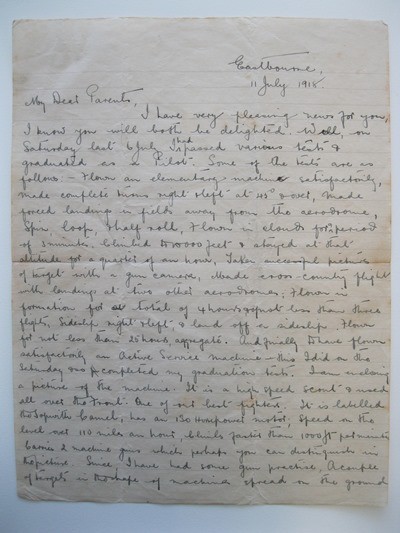 Eastbourne,
11 July 1918.
My Dear Parents,
I have very pleasing news for you,
I know you will both be delighted. Well, on
Saturday last 6 July I had passed various tests &
graduated as a Pilot. Some of the tests are as
follows - Flown an elementary machine satisfactorily,
made complete turns right & left at 45° & over, Made
forced landings in fields away from the aerodrome,
Spin, loop, & half roll, Flown in clouds for a period
of 5 minutes. Climbed to 10000 feet & stayed at that
altitude for a quarter of an hour, Taken successful pictures
of target with a gun camera, Made cross-country flight
with landings at two other aerodromes; Flown in
formation for a total of 4 hours & not less than three
flights, Sideslip right & left & land off a sideslip. Flown
for not less than 25 hours, aggregate. And finally to have flown
satisfactorily an Active Service machine - this I did on the
Saturday & so completed my graduation tests. I am enclosing
a picture of the machine. It is a high speed scout & used
all over the Front. One of our best fighters. It is labelled
the Sopwith Camel, has an 130 horsepower motor, Speed on the
level over 110 miles an hour, climbs faster than 1000 ft per minute
Carries 2 machine guns which perhaps you can distinguish in
the picture. Since, I have had some gun practise, A couple
of targets in the shape of machines spread on the ground